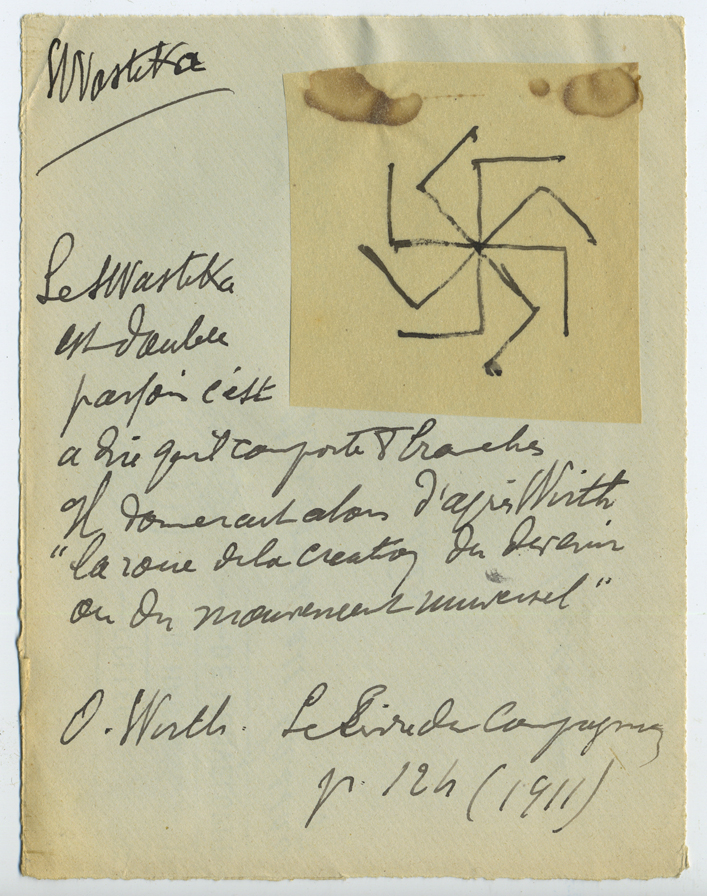 Swastika
Le swastika
est double
parfois c'est
a dire qu'il comporte 8 branches
Il donnerait alors d'après Wirth
"la roue de la creation du devenir
ou du mouvement universel"
O. Wirth. Le Livre du Compagnon
p. 124 (1911)